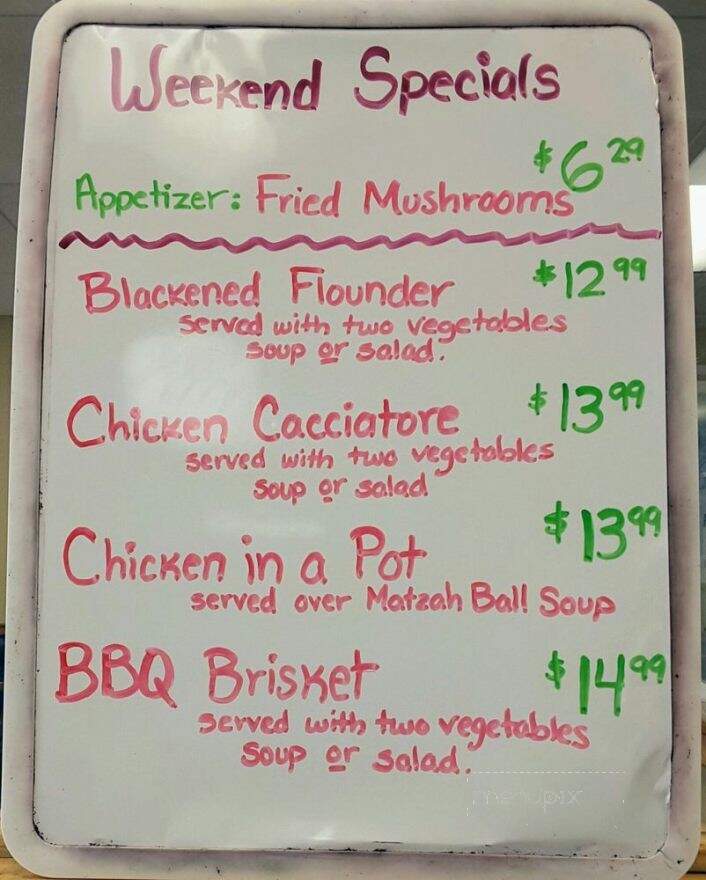 Weekend Specials
$6 29
Appetizer: Fried Mushrooms
Blackened Flounder $12 99
served with two vegetables
soup or salad.
Chicken Cacciatore $13 99
served with two vegetables
soup or salad
Chicken in a Pot $13 99
served over Matzah Ball Soup
BBQ Brisket $14 99
served with two vegetables
soup or salad.
menupix